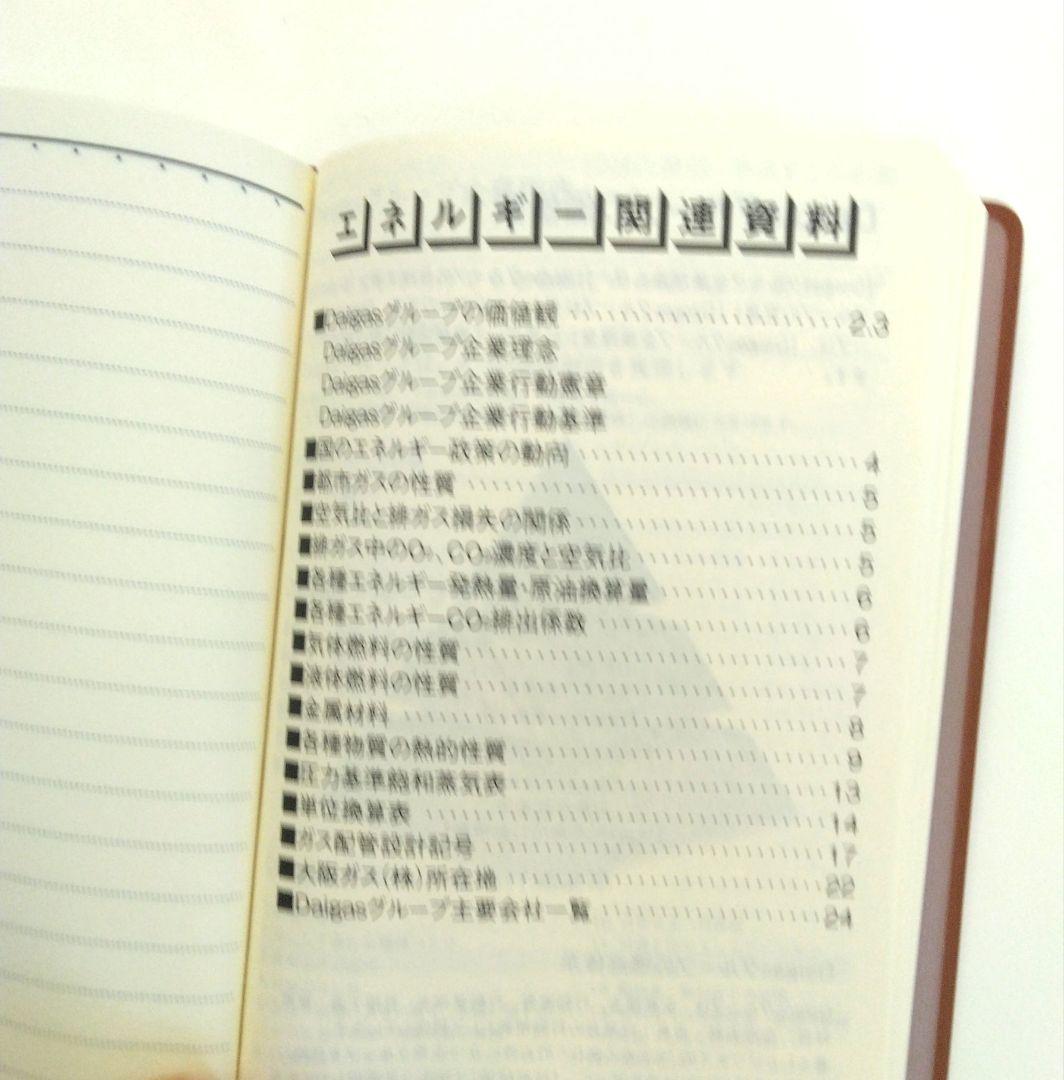 エネルギー関連資料
■Daigasグループの価値観 2,3
Daigasグループ企業理念
Daigasグループ企業行動憲章
Daigasグループ企業行動基準
■国のエネルギー政策の動向 4
■都市ガスの性質 5
■空気比と排ガス損失の関係 5
■排ガス中のO₂、CO₂濃度と空気比 5
■各種エネルギー発熱量・原油換算量 6
■各種エネルギーCO₂排出係数 6
■気体燃料の性質 7
■液体燃料の性質 7
■金属材料 8
■各種物質の熱的性質 9
■圧力基準飽和蒸気表 13
■単位換算表 14
■ガス配管設計記号 17
■大阪ガス(株)所在地 22
■Daigasグループ主要会社一覧 24